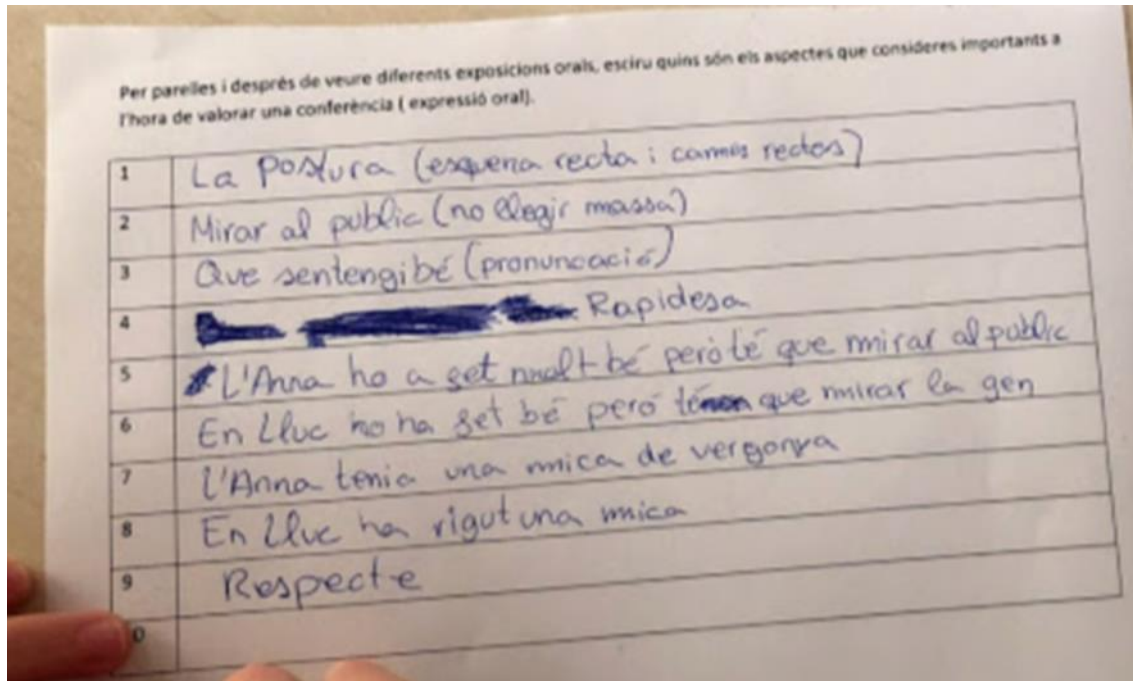 Per parelles i després de veure diferents exposicions orals, esciru quins són els aspectes que consideres importants a
l'hora de valorar una conferència ( expressió oral).
1 La postura (esquena recta i cames rectes)
2 Mirar al public (no llegir massa)
3 Que sentengi bé (pronuncació)
4 Rapidesa
5 L'Anna ho a fet molt bé però té que mirar al public
6 En Lluc ho ha fet bé però té que mirar la gen
7 L'Anna tenia una mica de vergonya
8 En Lluc ha rigut una mica
9 Respecte
0